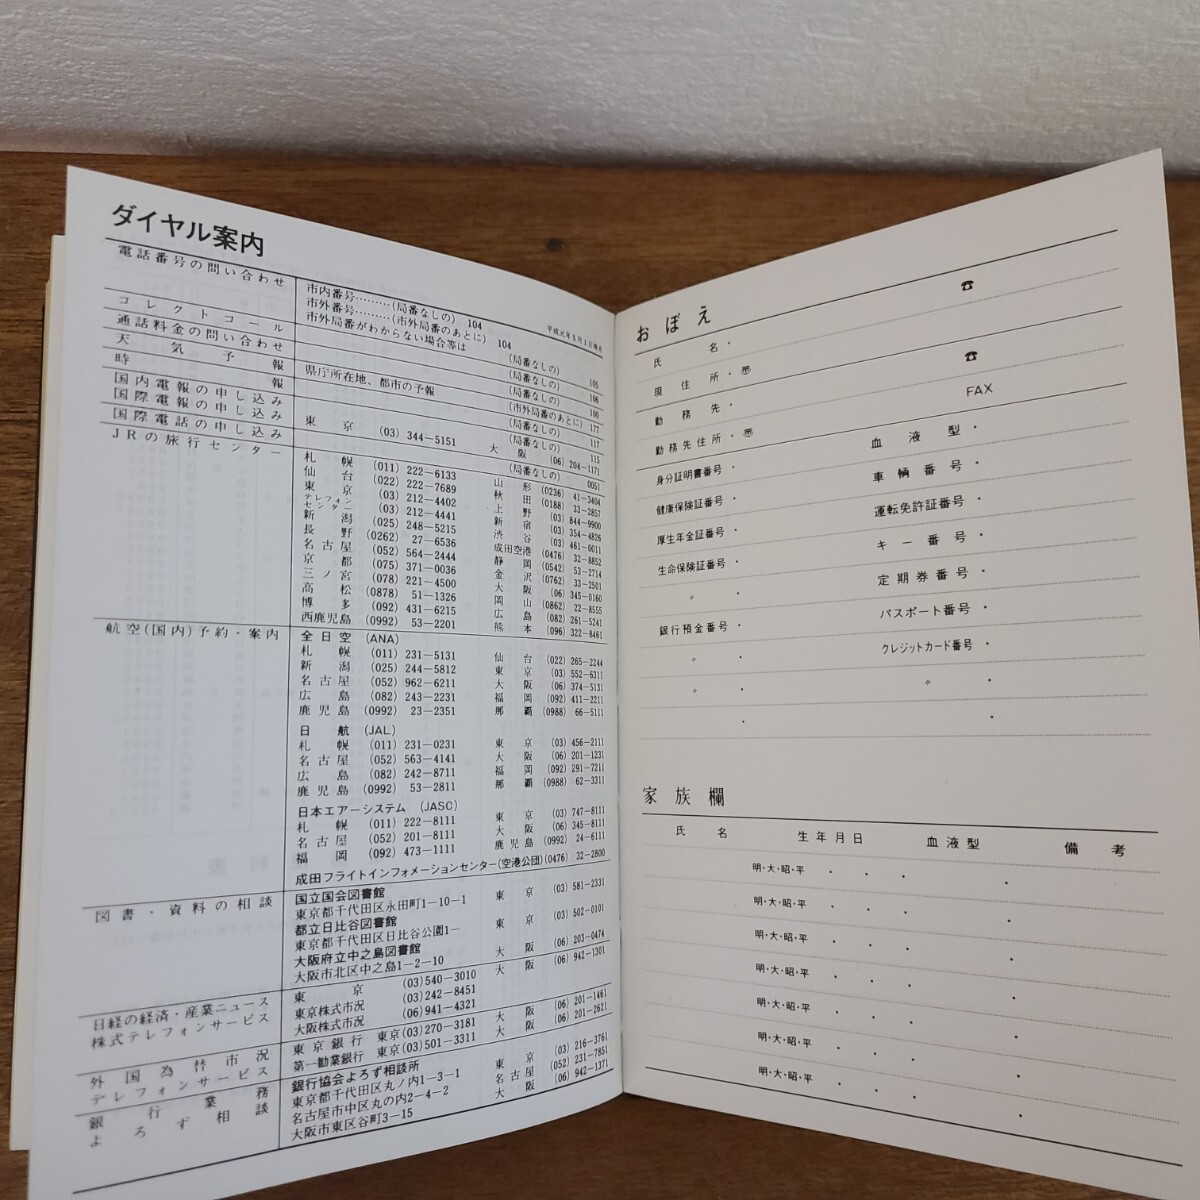 ダイヤル案内
平成元年5月1日現在
電話番号の問い合わせ
市内番号………(局番なしの) 104
市外番号………(市外局番のあとに) 104
市外局番がわからない場合等は (局番なしの) 105
コレクトコール (局番なしの) 106
通話料金の問い合わせ (局番なしの) 100
天気予報 県庁所在地、都市の予報 (市外局番のあとに) 177
時報 (局番なしの) 117
国内電報の申し込み (局番なしの) 115
国際電報の申し込み 東京 (03) 344-5151 大阪 (06) 204-1171
国際電話の申し込み (局番なしの) 0051
JRの旅行センター
札幌 (011) 222-6133 山形 (0236) 41-3404
仙台 (022) 222-7689 秋田 (0188) 33-2857
東京 (03) 212-4402 上野 (03) 844-9900
テレフォンセンター (03) 212-4441 新宿 (03) 354-4826
新潟 (025) 248-5215 渋谷 (03) 461-0011
長野 (0262) 27-6536 成田空港 (0476) 32-8852
名古屋 (052) 564-2444 静岡 (0542) 53-2714
京都 (075) 371-0036 金沢 (0762) 33-2501
三ノ宮 (078) 221-4500 大阪 (06) 345-0160
高松 (0878) 51-1326 岡山 (0862) 22-8555
博多 (092) 431-6215 広島 (082) 261-5241
西鹿児島 (0992) 53-2201 熊本 (096) 322-8461
航空(国内)予約・案内
全日空 (ANA)
札幌 (011) 231-5131 仙台 (022) 265-2244
新潟 (025) 244-5812 東京 (03) 552-6311
名古屋 (052) 962-6211 大阪 (06) 374-5131
広島 (082) 243-2231 福岡 (092) 411-2211
鹿児島 (0992) 23-2351 那覇 (0988) 66-5111
日航 (JAL)
札幌 (011) 231-0231 東京 (03) 456-2111
名古屋 (052) 563-4141 大阪 (06) 201-1231
広島 (082) 242-8711 福岡 (092) 291-7211
鹿児島 (0992) 53-2811 那覇 (0988) 62-3311
日本エアーシステム (JASC)
札幌 (011) 222-8111 東京 (03) 747-8111
名古屋 (052) 201-8111 大阪 (06) 345-8111
福岡 (092) 473-1111 鹿児島 (0992) 24-6111
成田フライトインフォメーションセンター(空港公団)(0476) 32-2800
図書・資料の相談
国立国会図書館 東京 (03) 581-2331
東京都千代田区永田町1-10-1
都立日比谷図書館 東京 (03) 502-0101
東京都千代田区日比谷公園1-
大阪府立中之島図書館 大阪 (06) 203-0474
大阪市北区中之島1-2-10
日経の経済・産業ニュース
株式テレフォンサービス
東京 (03) 540-3010 大阪 (06) 942-1301
東京株式市況 (03) 242-8451
大阪株式市況 (06) 941-4321
外国為替市況
テレフォンサービス
東京銀行 東京(03) 270-3181 大阪 (06) 201-1461
第一勧業銀行 東京(03) 501-3311 大阪 (06) 201-2621
銀行業務
よろず相談
銀行協会よろず相談所
東京都千代田区丸ノ内1-3-1 東京 (03) 216-3761
名古屋市中区丸の内2-4-2 名古屋 (052) 231-7851
大阪市東区谷町3-15 大阪 (06) 942-1371
おぼえ
氏名・ ☎
現住所・〠
勤務先・ ☎
勤務先住所・〠 FAX
身分証明書番号・ 血液型・
健康保険証番号・ 車輌番号・
厚生年金証番号・ 運転免許証番号・
生命保険証番号・ キー番号・
〃・ 定期券番号・
銀行預金番号・ パスポート番号・
〃・ クレジットカード番号・
〃・ 〃・
・ ・
家族欄
氏名 生年月日 血液型 備考
明・大・昭・平 ・ ・ ・
明・大・昭・平 ・ ・ ・
明・大・昭・平 ・ ・ ・
明・大・昭・平 ・ ・ ・
明・大・昭・平 ・ ・ ・
明・大・昭・平 ・ ・ ・
明・大・昭・平 ・ ・ ・